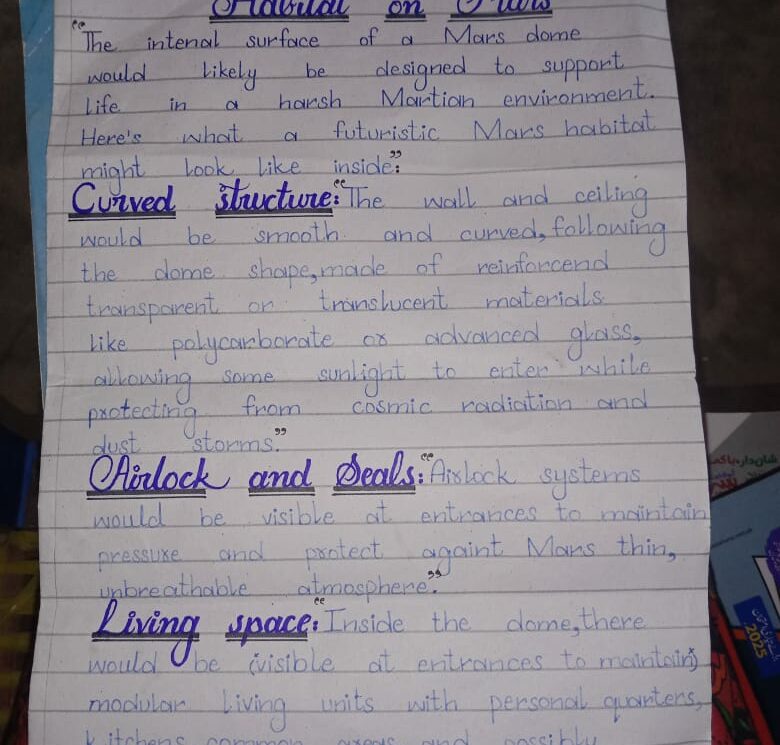 Habitat on Mars
"The intenal surface of a Mars dome
would likely be designed to support
Life in a harsh Martian environment.
Here's what a futuristic Mars habitat
might look like inside":
Curved structure: "The wall and ceiling
would be smooth and curved, following
the dome shape, made of reinforcend
transparent or translucent materials
like polycarborate or advanced glass,
allowing some sunlight to enter while
protecting from cosmic radiation and
dust storms."
Airlock and Seals: "Airlock systems
would be visible at entrances to maintain
pressure and protect againt Mars thin,
unbreathable atmosphere."
Living space: "Inside the dome, there
would be (visible at entrances to maintain)
modular living units with personal quarters,
kitchens common areas and possibly
شاندار، پاک
2025